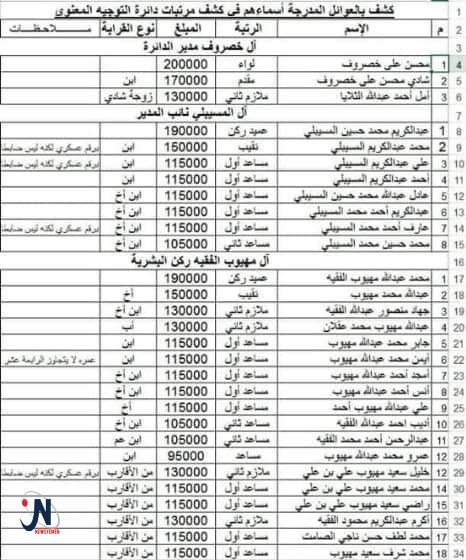 كشف بالعوائل المدرجة أسماءهم في كشف مرتبات دائرة التوجيه المعنوي
م الإسم الرتبة المبلغ نوع القرابة مــــلاحظــــات
آل خصروف مدير الدائرة
1 محسن على خصروف لواء 200000
2 شادي محسن على خصروف مقدم 170000 ابن
3 أمل أحمد عبدالله الثلايا ملازم ثاني 130000 زوجة شادي
آل المسيبلي نائب المدير
1 عبدالكريم محمد حسين المسيبلي عميد ركن 190000
2 محمد عبدالكريم المسيبلي نقيب 150000 ابن برقم عسكري لكنه ليس ضابطا
3 علي عبدالكريم المسيبلي مساعد أول 115000 ابن برقم عسكري لكنه ليس ضابطا
4 أحمد عبدالكريم المسيبلي مساعد أول 115000 ابن
5 عادل عبدالله محمد حسين المسيبلي مساعد أول 115000 ابن أخ
6 عبدالكريم أحمد محمد المسيبلي مساعد أول 115000 ابن أخ
7 عارف أحمد محمد المسيبلي مساعد أول 115000 ابن أخ برقم عسكري لكنه ليس ضابطا
8 محمد حسين محمد المسيبلي مساعد ثاني 105000 ابن أخ
آل مهيوب الفقيه ركن البشرية
1 محمد عبدالله مهيوب الفقيه عميد ركن 190000
2 عبدالله محمد مهيوب نقيب 150000 أخ
3 جهاد منصور عبدالله الفقيه ملازم ثاني 130000 ابن أخ
4 عبدالله مهيوب محمد عقلان ملازم ثاني 130000 أب
5 جابر محمد عبدالله مهيوب مساعد أول 115000 ابن
6 أيمن محمد عبدالله مهيوب مساعد أول 115000 ابن عمره لا يتجاوز الرابعة عشر
7 أمجد أحمد عبدالله مهيوب مساعد أول 115000 ابن أخ
8 أنس أحمد عبدالله مهيوب مساعد أول 115000 ابن أخ
9 علي عبدالله مهيوب أحمد مساعد أول 115000 أخ
10 أديب احمد عبدالله الفقيه مساعد ثاني 105000 ابن أخ
11 عبدالرحمن أحمد محمد الفقيه مساعد ثاني 105000 ابن عم
12 عمرو محمد عبدالله مهيوب مساعد 95000 ابن
13 خليل سعيد مهيوب علي بن علي ملازم ثاني 130000 من الأقارب برقم عسكري لكنه ليس ضابطا
14 محمد سعيد مهيوب علي بن علي مساعد أول 115000 من الأقارب
15 راضي سعيد مهيوب علي بن علي مساعد أول 115000 من الأقارب
16 أكرم عبدالكريم محمود الفقيه ملازم ثاني 130000 من الأقارب
17 محمد لطف حسن ناجي الصامت مساعد أول 115000 من الأقارب
18 محمد شرف سعيد مهيوب مساعد أول 115000 من الأقارب
NEWSYEMEN